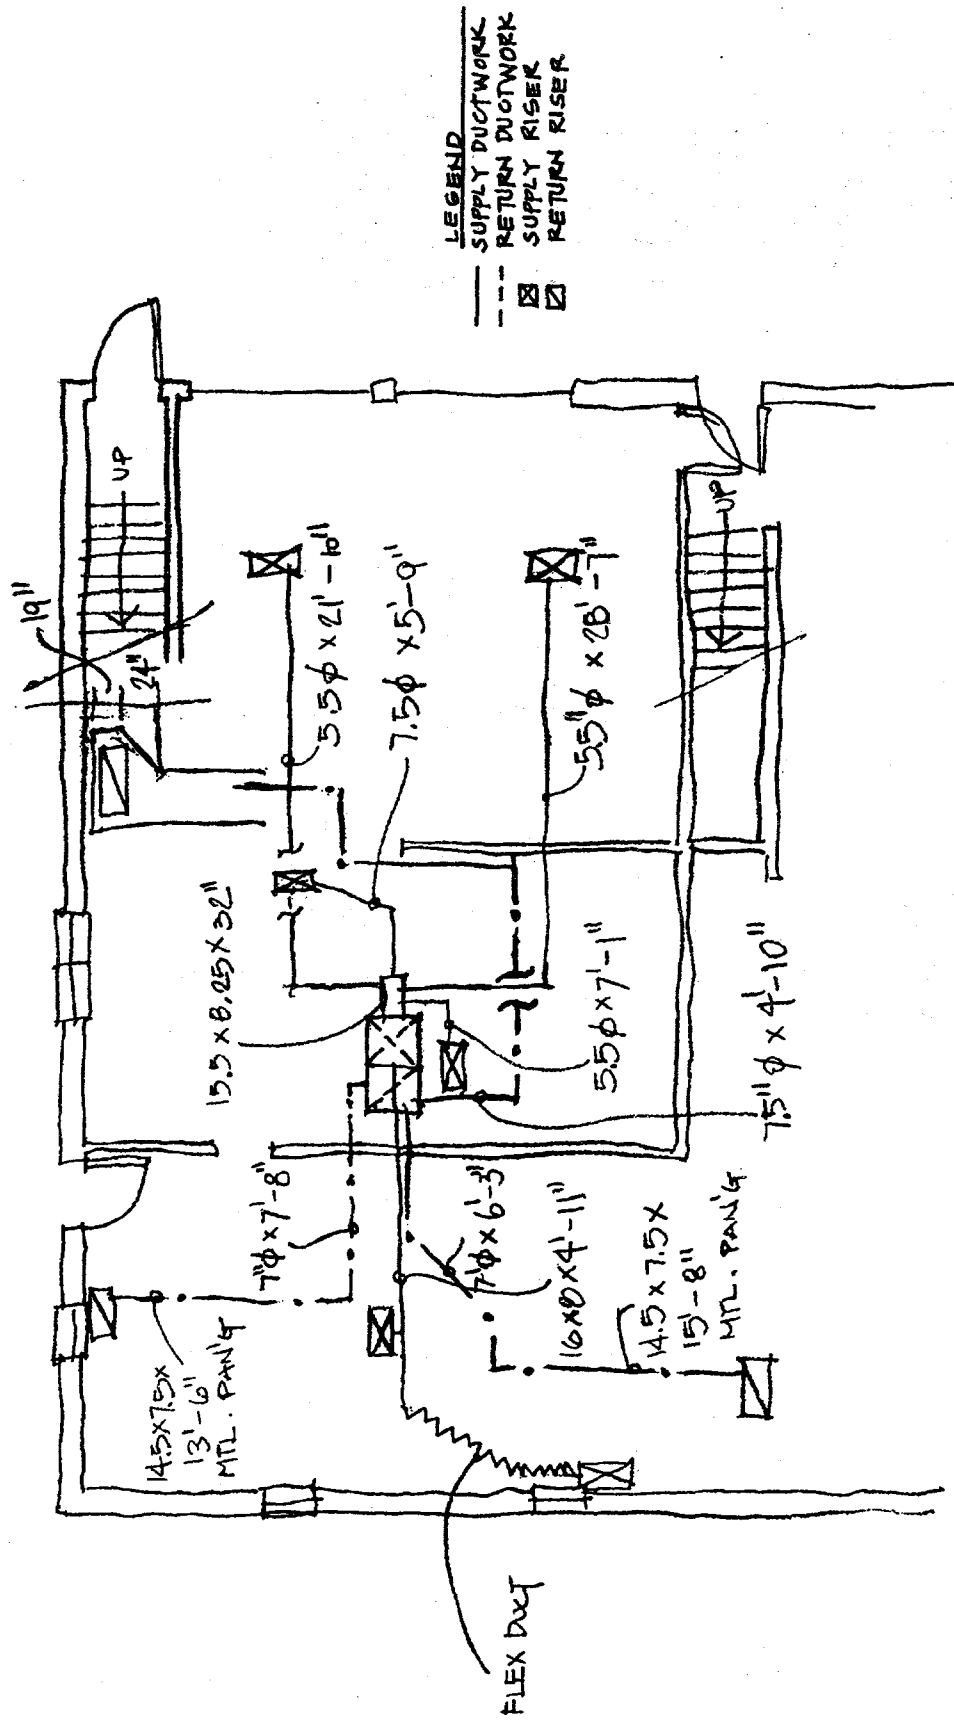 LEGEND
SUPPLY DUCTWORK
RETURN DUCTWORK
SUPPLY RISER
RETURN RISER
UP
19"
24"
5.5ϕ x 21'-10"
7.5ϕ x 5'-9"
5.5"ϕ x 28'-7"
UP
15.5 x 8.25 x 32"
5.5ϕ x 7'-1"
7.5"ϕ x 4'-10"
7"ϕ x 7'-8"
7"ϕ x 6'-3"
16x8x4'-11"
14.5x7.5x
13'-6"
MTL. PAN'G
14.5 x 7.5 x
15'-8"
MTL. PAN'G
FLEX DUCT